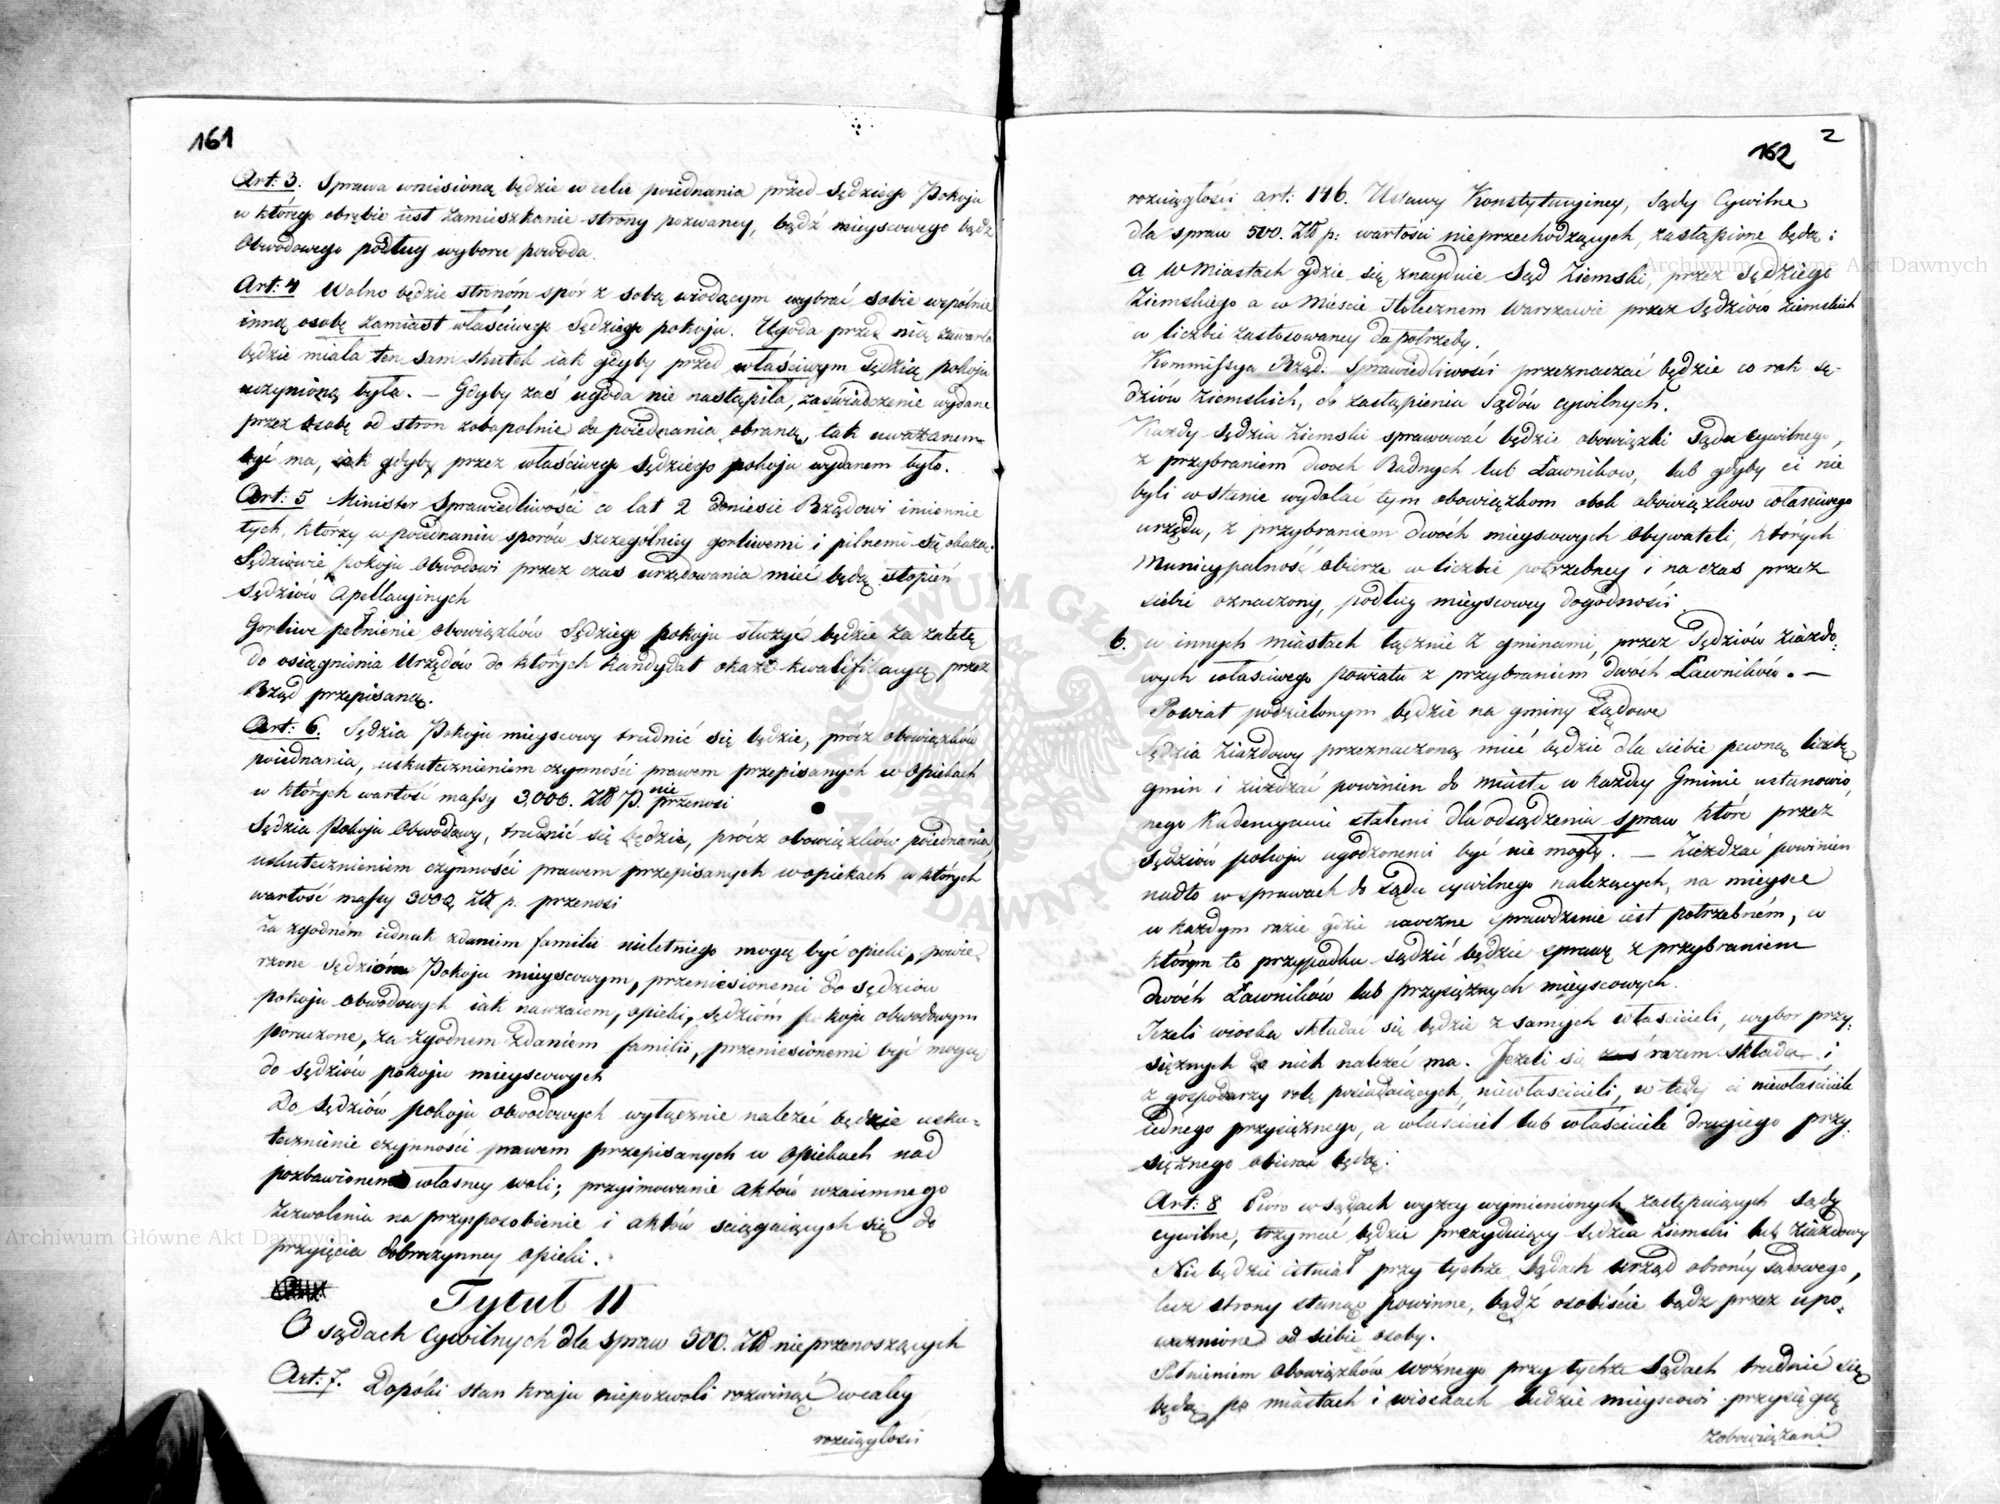 161
Art: 3. Sprawa wniesioną będzie w celu poiednania przed Sędziego Pokoju
w którego obrębie iest zamieszkanie strony pozwaney, bądź mieyscowego bądź
Obwodowego podług wyboru powoda.
Art: 4 Wolno będzie stronóm spór z sobą wiodącym wybrać sobie wspólnie
inną osobę zamiast właściwego Sędziego pokoju. Ugoda przed nią zawarta
będzie miała ten sam skutek iak gdyby przed właściwym Sędzią pokoju
uczynioną była. — Gdyby zaś ugoda nie nastąpiła, zaświadczenie wydane
przez osobę od stron zobopolnie do poiednania obraną, tak uważanem
być ma, iak gdyby przez właściwego Sędziego pokoju wydanem było.
Art: 5 Minister Sprawiedliwości co lat 2 doniesie Rządowi imiennie
tych, którzy w poiednaniu sporów szczególniey gorliwemi i pilnemi się okażą.
Sędziowie pokoju Obwodowi przez czas urzędowania mieć będą stopień
Sędziów Apellacyjnych
Gorliwe pełnienie obowiązków Sędziego pokoju służyć będzie za zaletę
do osiągnienia Urzędów do których kandydat okaże kwalifikacyą przez
Rząd przepisaną.
Art: 6. Sędzia Pokoju mieyscowy trudnić się będzie, prócz obowiązków
poiednania, uskutecznieniem czynności prawem przepisanych w Opiekach
w których wartość massy 3,000. Złł P. nie przenosi
Sędzia Pokoju Obwodowy, trudnić się będzie, prócz obowiązków poiednania,
uskutecznieniem czynności prawem przepisanych w opiekach w których
wartość massy 3000 Złł p. przenosi
Za zgodném iednak zdaniem familii nieletniego mogą być opieki, powie-
rzone Sędzióm Pokoju mieyscowym, przeniesionemi do Sędziów
pokoju Obwodowych iak nawzaiem, opieki, Sędzióm pokoju obwodowym
poruczone, za zgodnem zdaniem familii, przeniesionemi być mogą
do Sędziów pokoju mieyscowych
Do Sędziów pokoju obwodowych wyłącznie należeć będzie usku-
tecznienie czynności prawem przepisanych w Opiekach nad
pozbawionemi własney woli; przyimowanie aktów wzaiemnego
zezwolenia na przysposobienie i aktów ściągaiących się do
przyięcia dobroczynney opieki.
Tytuł II
O sądach Cywilnych dla spraw 500. Złł nieprzenoszących
Art: 7. Dopóki stan kraju niepozwoli rozwinąć w całey
rozciągłości
2
162
rozciągłości art: 146. Ustawy Konstytucyiney, Sądy Cywilne
dla spraw 500. Złł p: wartości nieprzechodzących, zastąpione będą:
a w miastach gdzie się znayduie Sąd Ziemski, przez Sędziego
Ziemskiego a w Mieście Stołecznem Warszawie przez Sędziów Ziemskich
w liczbie zastosowaney do potrzeby.
Kommissya Rząd: Sprawiedliwości przeznaczać będzie co rok Sę-
dziów Ziemskich, do zastąpienia Sądów cywilnych.
Każdy Sędzia Ziemski sprawować będzie obowiązki Sądu cywilnego,
z przybraniem dwoch Radnych lub Ławników, lub gdyby ci nie
byli w stanie wydołać tym obowiązkom obok obowiązków właściwego
urzędu, z przybraniem dwóch mieyscowych Obywateli, których
Municypalność obierze w liczbie potrzebney i na czas przez
siebie oznaczony, podług mieyscowey dogodności.
b. w innych miastach łącznie z gminami, przez Sędziów ziazdo-
wych właściwego powiatu z przybraniem dwóch Ławników. —
Powiat podzielonym będzie na gminy Sądowe
Sędzia ziazdowy przeznaczoną mieć będzie dla siebie pewną liczbę
gmin i ziezdzać powinien do miasta w każdey Gminie ustanowio-
nego kadencyami stałemi dla odsądzenia spraw które przez
Sędziów pokoju ugodzonemi być nie mogły. — Zieżdżać powinien
nadto w sprawach do Sądu cywilnego należących, na mieysce
w każdym razie gdzie naoczne sprawdzenie iest potrzebném, w
którym to przypadku sądzić będzie sprawę z przybraniem
dwóch Ławników lub przysięznych mieyscowych.
Jeżeli wioska składać się będzie z samych właścicieli, wybor przy-
sięznych do nich należeć ma. Jeżeli się razem składa i
z gospodarzy rolę posiadaiących, niewłaścicieli, w tedy ci niewłaściciele
iednego przysięznego, a właściciel lub właściciele drugiego przy-
sięznego obierać będą.
Art: 8 Pióro w Sądach wyżey wymienionych zastępuiących Sądy
cywilne, trzymać będzie prezyduiący Sędzia Ziemski lub Ziazdowy
Nie będzie istniał przy tychże Sądach urząd obrońcy Sądowego,
lecz strony stanąć powinne, bądź osobiście bądz przez upo-
ważnione od siebie osoby.
Pełnieniem obowiązków woźnego przy tychże Sądach trudnić się
będą po miastach i wioskach ludzie mieyscowi przysięgą
zobowiązani
Archiwum Główne Akt Dawnych
Archiwum Główne Akt Dawnych
ARCHIWUM GŁÓWNE AKT DAWNYCH